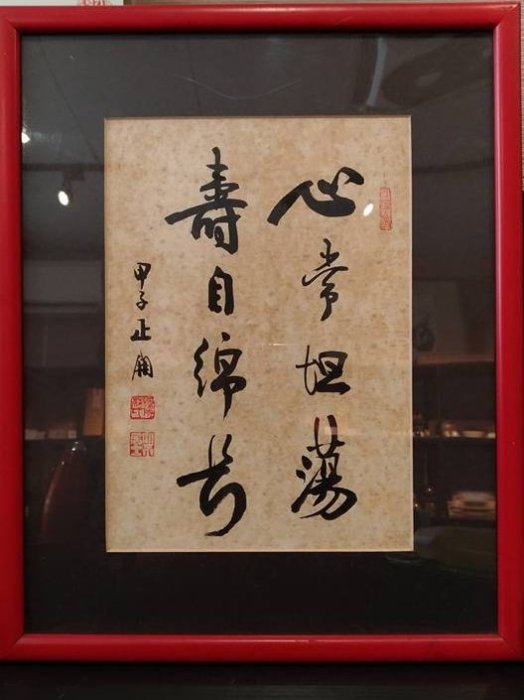 心常坦蕩
壽自綿長
甲子正